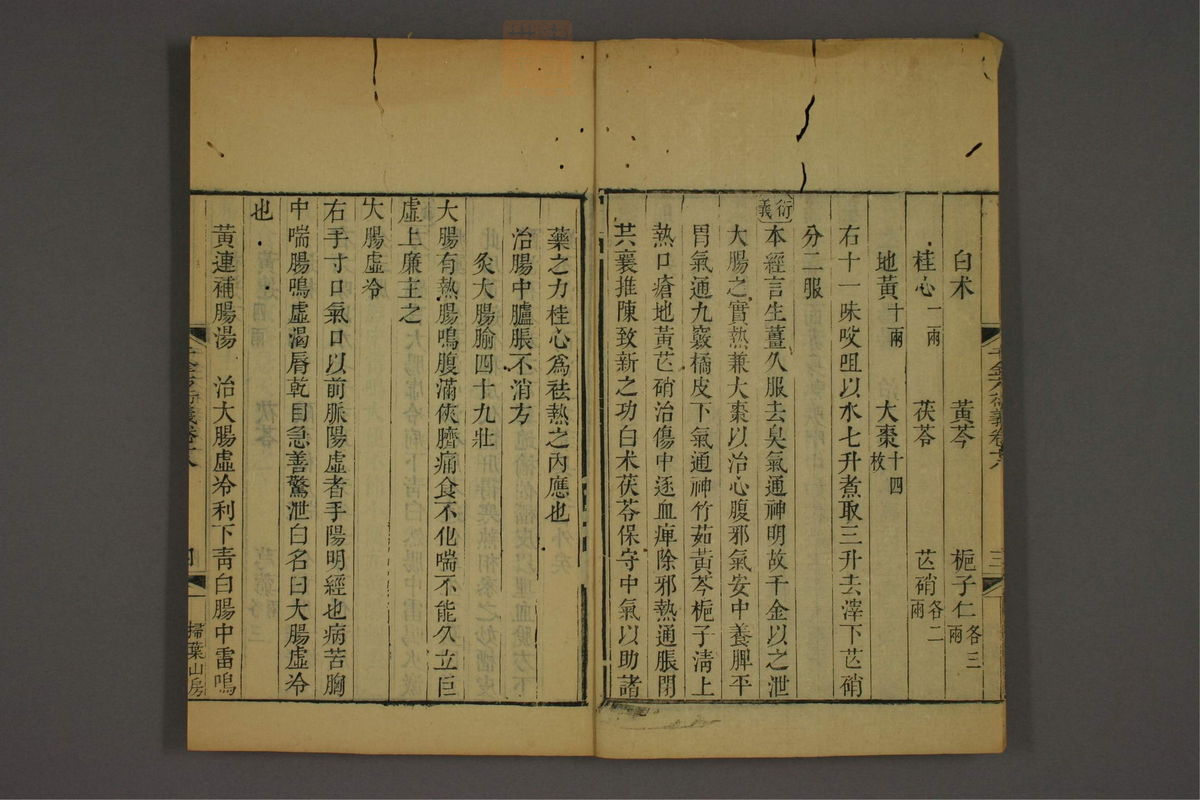 白朮 黃芩 梔子仁各三兩
桂心一兩 茯苓 芒硝各二兩
地黃十兩 大棗十四枚
右十一味㕮咀以水七升煮取三升去滓下芒硝
分二服
衍義本經言生薑久服去臭氣通神明故千金以之泄
大腸之實熱兼大棗以治心腹邪氣安中養脾平
胃氣通九竅橘皮下氣通神竹茹黃芩梔子淸上
熱口瘡地黃芒硝治傷中逐血痺除邪熱通脹閉
共襄推陳致新之功白朮茯苓保守中氣以助諸
藥之力桂心爲祛熱之內應也
治腸中臚脹不消方
灸大腸腧四十九壯
大腸有熱腸鳴腹滿俠臍痛食不化喘不能久立巨
虛上廉主之
大腸虛冷
右手寸口氣口以前脈陽虛者手陽明經也病苦胸
中喘腸鳴虛渴唇乾目急善驚泄白名曰大腸虛冷
也
黃連補腸湯 治大腸虛冷利下靑白腸中雷鳴
千金方衍義卷十八
三
四
掃葉山房